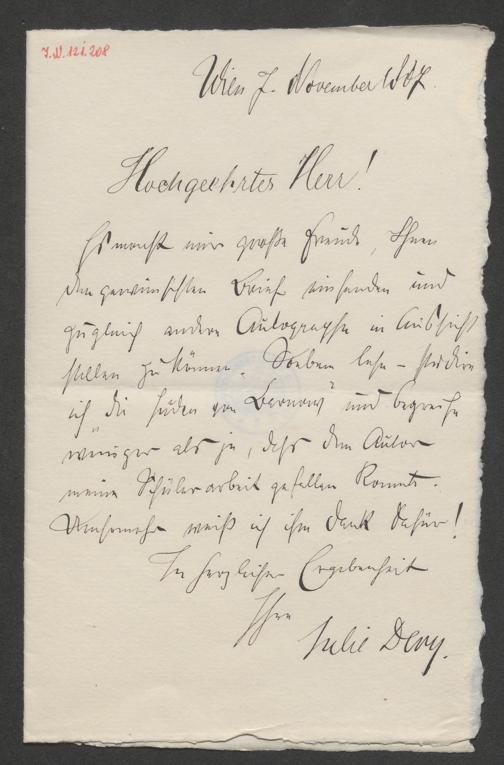 J.N. 121.208
Wien 7. November 1887.
Hochgeehrter Herr!
Es macht mir große Freude, Ihnen
den gewünschten Brief einsenden und
zugleich andere Autographe in Aussicht
stellen zu können. Soeben lese – studire
ich „die Juden von Barnow" und begreife
weniger als je, daß dem Autor
meine Schülerarbeit gefallen konnte.
Umsomehr weiß ich ihm Dank dafür!
In herzlicher Ergebenheit
Ihre
Julie